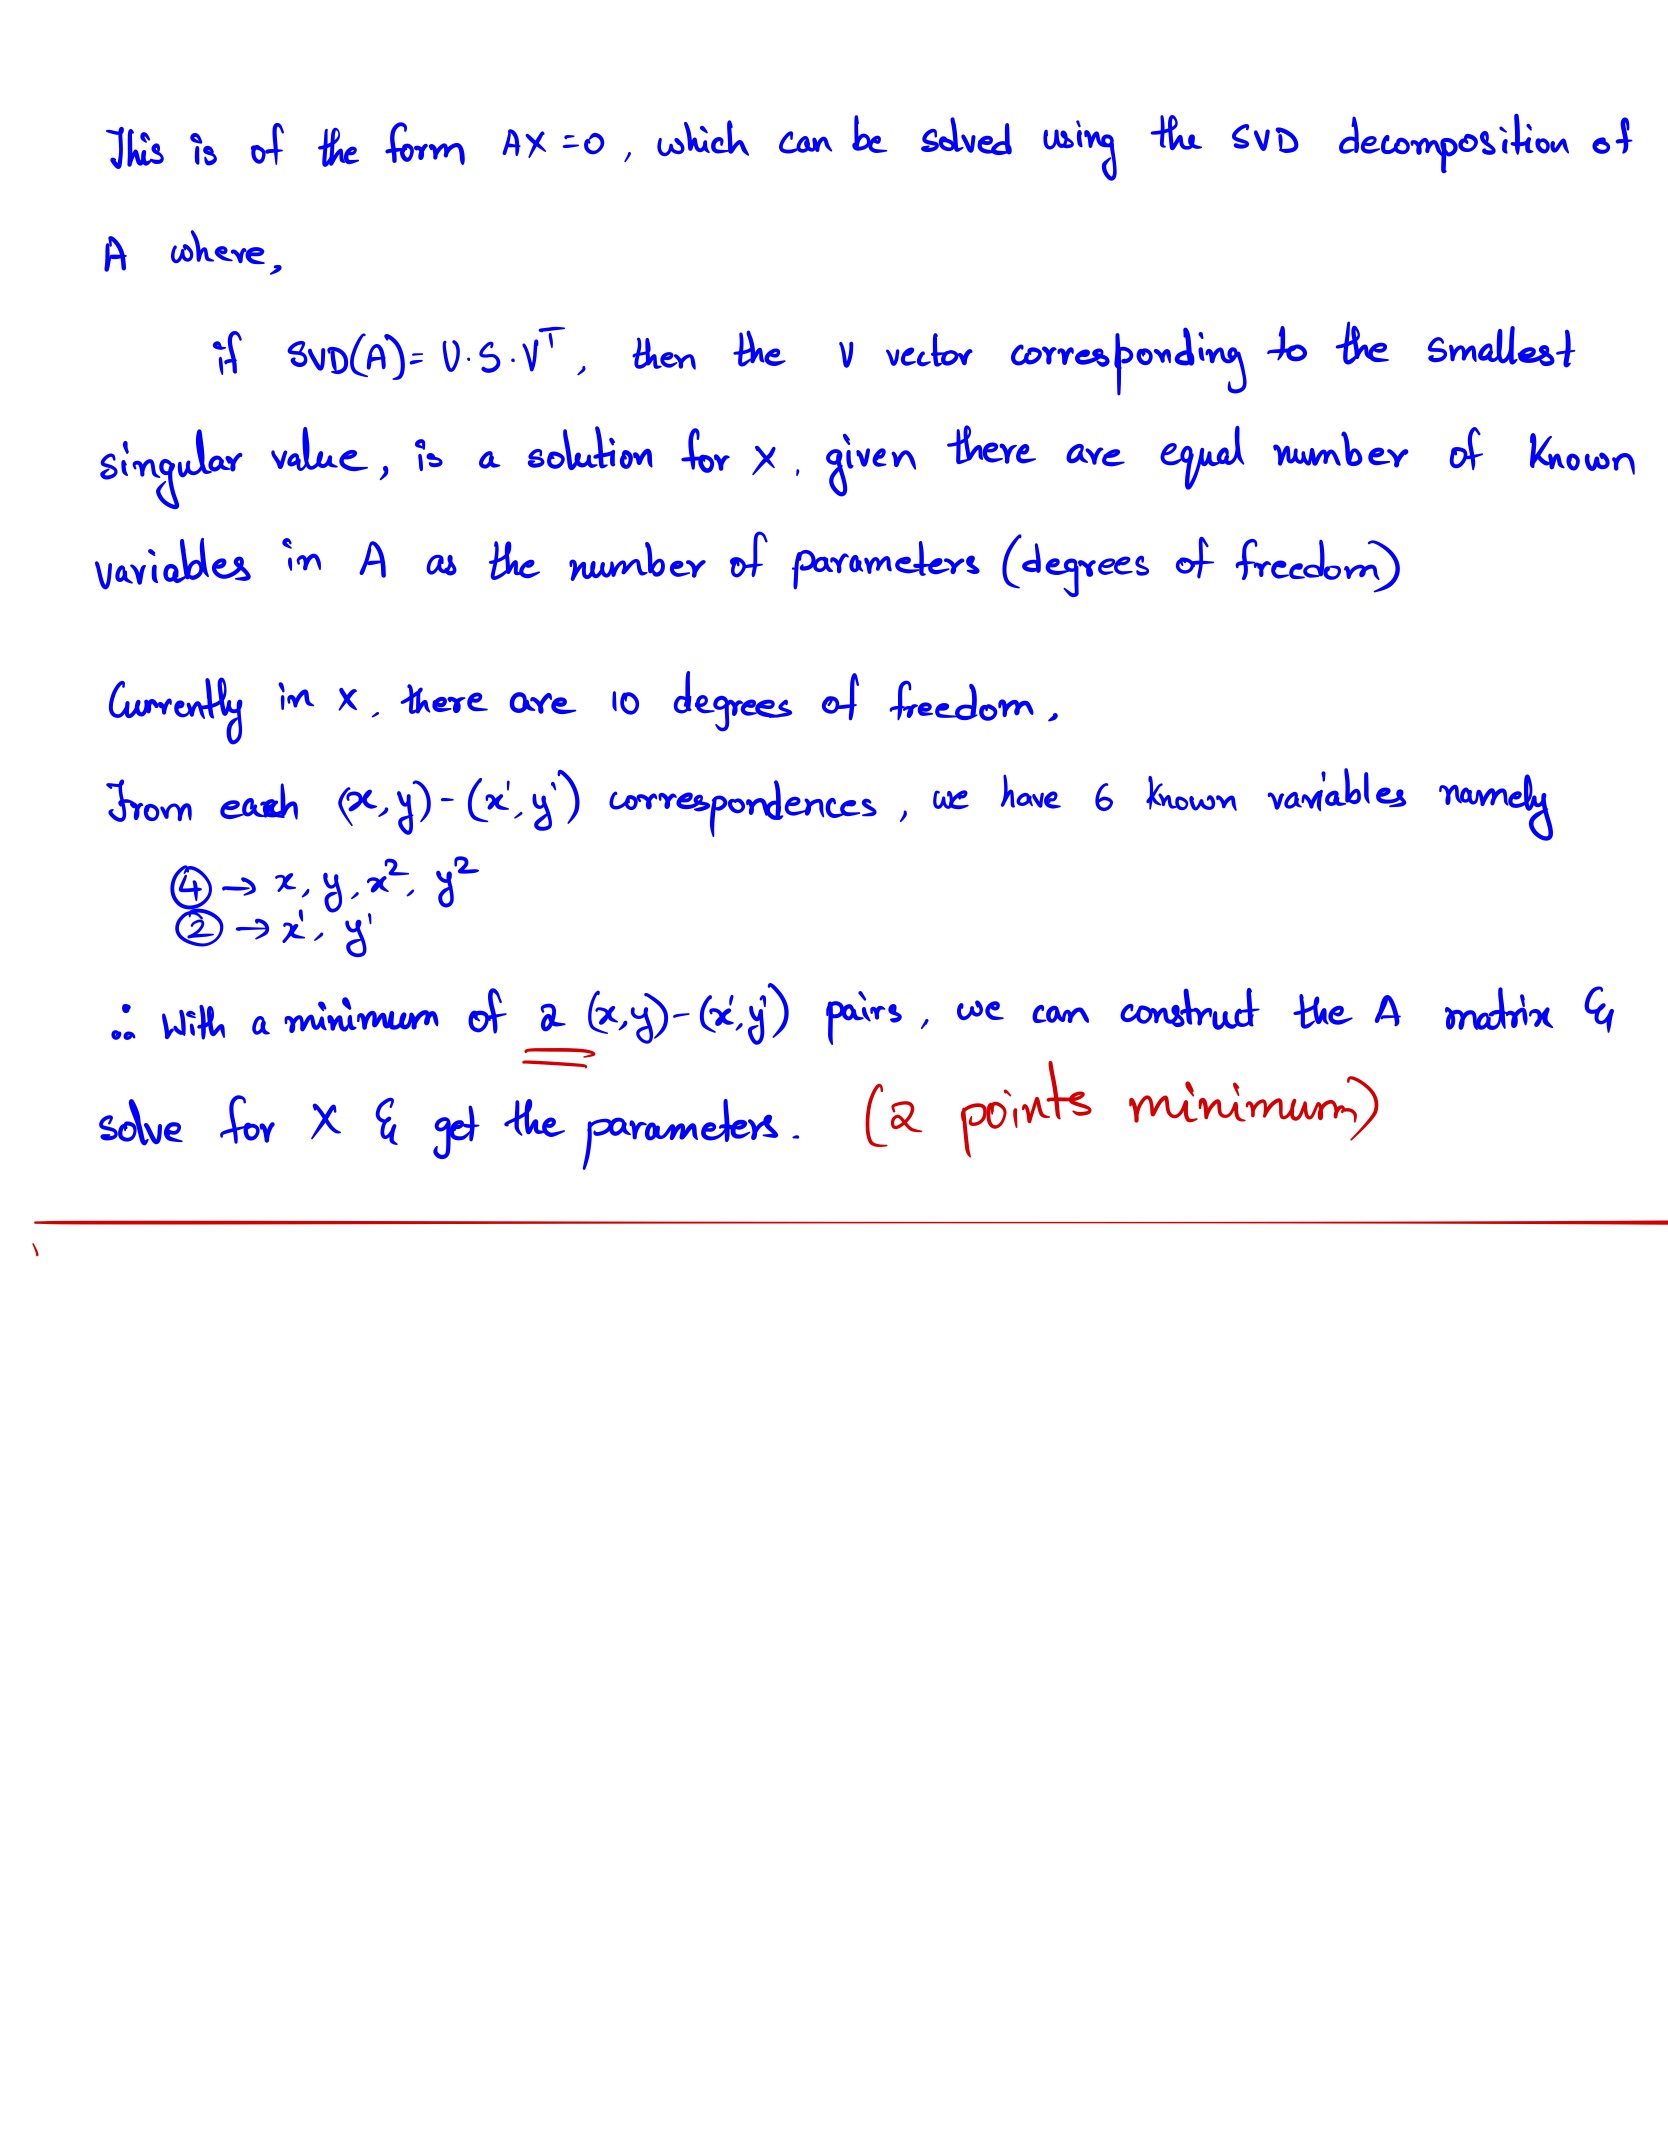 This is of the form AX = 0, which can be solved using the SVD decomposition of
A where,
if SVD(A) = U·S·Vᵀ, then the V vector corresponding to the smallest
singular value, is a solution for X, given there are equal number of known
variables in A as the number of parameters (degrees of freedom)
Currently in X, there are 10 degrees of freedom.
From each (x,y)-(x',y') correspondences, we have 6 known variables namely
④ → x, y, x², y²
② → x', y'
∴ With a minimum of 2 (x,y)-(x',y') pairs, we can construct the A matrix &
solve for X & get the parameters. (2 points minimum)